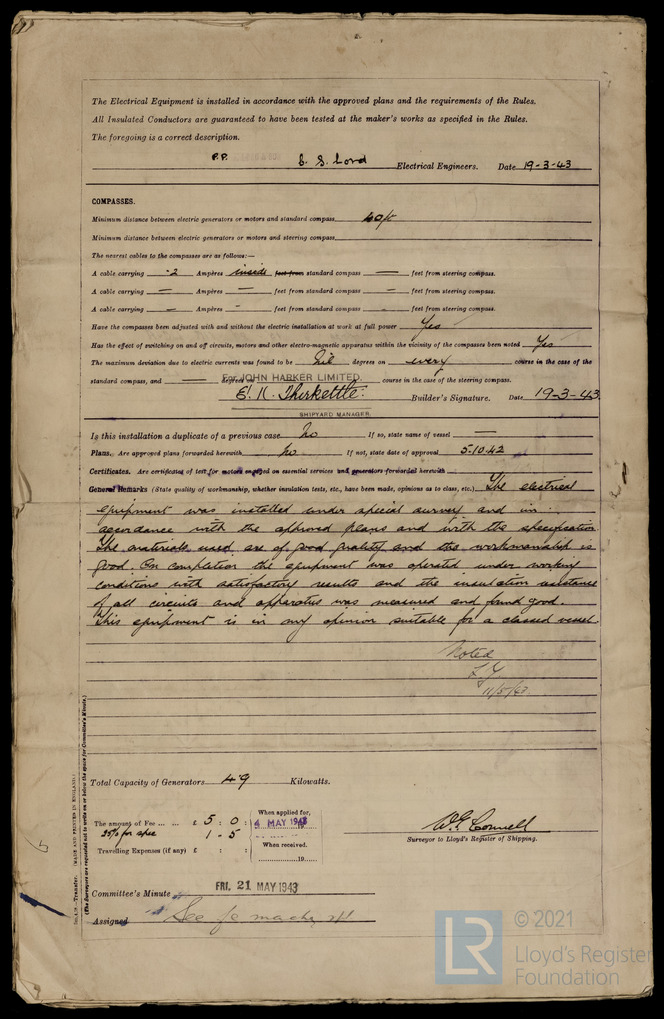 The Electrical Equipment is installed in accordance with the approved plans and the requirements of the Rules.
All Insulated Conductors are guaranteed to have been tested at the maker's works as specified in the Rules.
The foregoing is a correct description.
P.P. S. S. Lord Electrical Engineers. Date 19-3-43
COMPASSES.
Minimum distance between electric generators or motors and standard compass 40ft
Minimum distance between electric generators or motors and steering compass
The nearest cables to the compasses are as follows:—
A cable carrying ·2 Ampères inside feet from standard compass — feet from steering compass.
A cable carrying — Ampères — feet from standard compass — feet from steering compass.
A cable carrying — Ampères - feet from standard compass - feet from steering compass.
Have the compasses been adjusted with and without the electric installation at work at full power Yes
Has the effect of switching on and off circuits, motors and other electro-magnetic apparatus within the vicinity of the compasses been noted Yes
The maximum deviation due to electric currents was found to be Nil degrees on every course in the case of the
standard compass, and — degrees on course in the case of the steering compass.
For JOHN HARKER LIMITED.
G. K. Thirkettle. Builder's Signature. Date 19-3-43
SHIPYARD MANAGER.
Is this installation a duplicate of a previous case No If so, state name of vessel —
Plans. Are approved plans forwarded herewith No If not, state date of approval 5-10-42
Certificates. Are certificates of test for motors engaged on essential services and generators forwarded herewith
General Remarks (State quality of workmanship, whether insulation tests, etc., have been made, opinions as to class, etc.) The electrical
equipment was installed under special survey and in
accordance with the approved plans and with the specification.
The materials used are of good quality and the workmanship is
good. On completion the equipment was operated under working
conditions with satisfactory results and the insulation resistance
of all circuits and apparatus was measured and found good.
This equipment is in my opinion suitable for a classed vessel.
Noted
11/5/43
Total Capacity of Generators 49 Kilowatts.
The amount of Fee ... ... £ 5 : 0 : When applied for, 4 MAY 1943
25% for spec 1 - 5
Travelling Expenses (if any) £ : : When received. 19
Surveyor to Lloyd's Register of Shipping.
Committee's Minute FRI. 21 MAY 1943
Assigned See
(MADE AND PRINTED IN ENGLAND.)
(The Surveyors are requested not to write on or below the space for Committee's Minute.)
LR © 2021
Lloyd's Register
Foundation